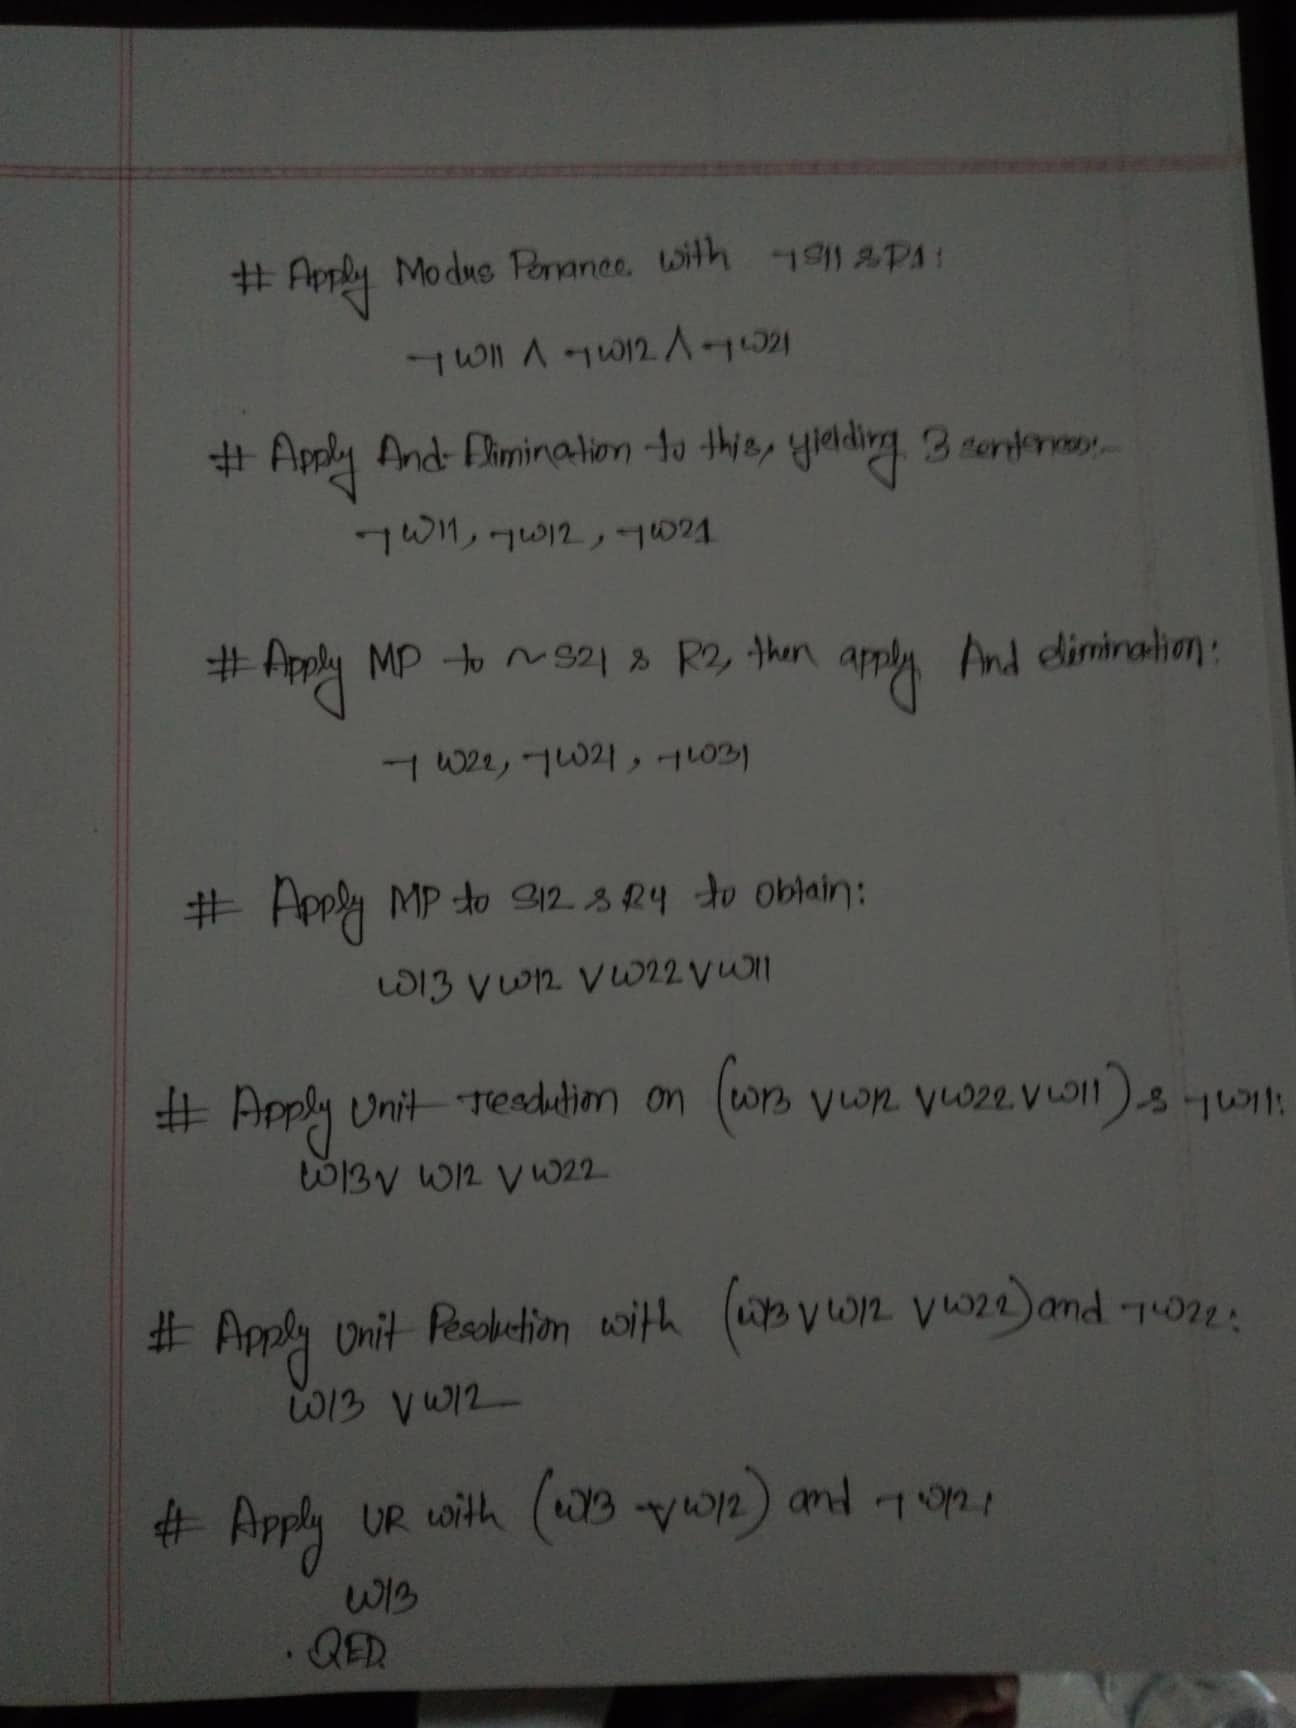 # Apply Modus Ponance with ¬S11 & R1:
¬W11 ∧ ¬W12 ∧ ¬W21
# Apply And-Elimination to this, yielding 3 sentences:-
¬W11, ¬W12, ¬W21
# Apply MP to ~S21 & R2, then apply And elimination:
¬W22, ¬W21, ¬W31
# Apply MP to S12 & R4 to obtain:
W13 ∨ W12 ∨ W22 ∨ W11
# Apply Unit resolution on (W13 ∨ W12 ∨ W22 ∨ W11) & ¬W11:
W13 ∨ W12 ∨ W22
# Apply Unit Resolution with (W13 ∨ W12 ∨ W22) and ¬W22:
W13 ∨ W12
# Apply UR with (W13 ∨ W12) and ¬W12:
W13
. QED